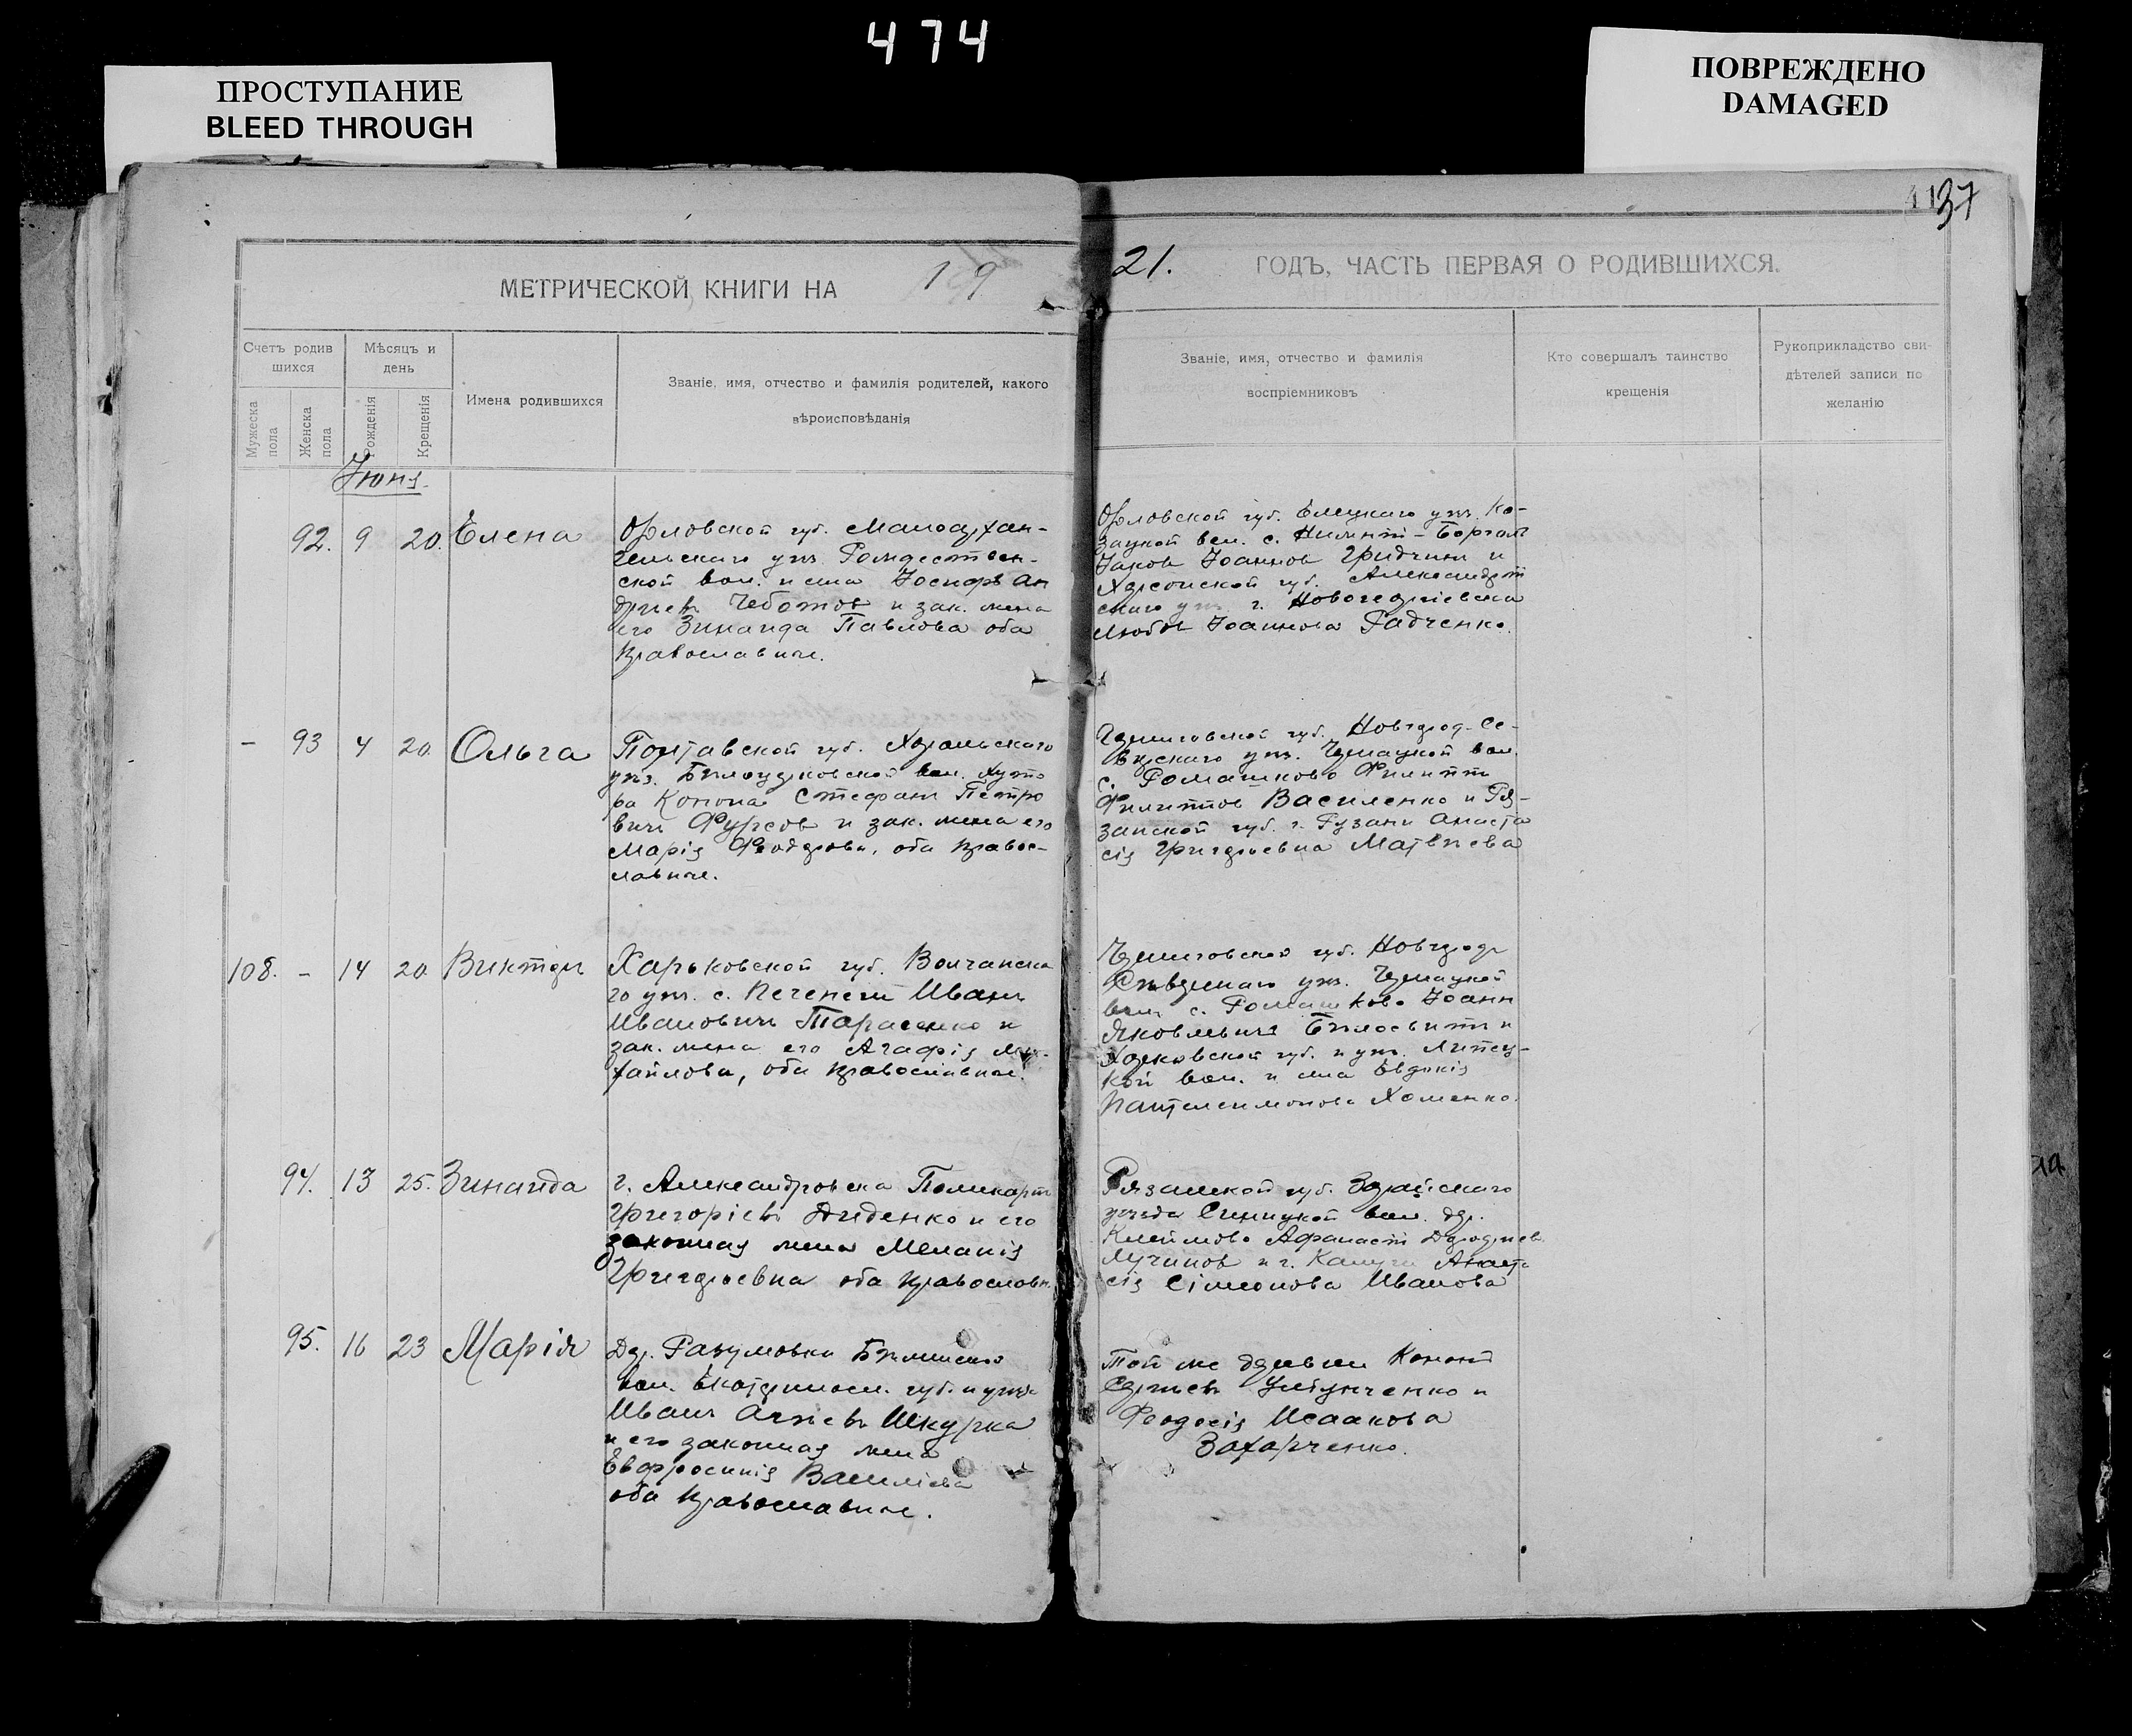 474
ПРОСТУПАНИЕ
BLEED THROUGH
ПОВРЕЖДЕНО
DAMAGED
37
МЕТРИЧЕСКОЙ КНИГИ НА 19
21. ГОДЪ, ЧАСТЬ ПЕРВАЯ О РОДИВШИХСЯ.
Счетъ родив
шихся
Мужеска
пола
Женска
пола
Мѣсяцъ и
день
Рожденія
Крещенія
Имена родившихся
Званіе, имя, отчество и фамилія родителей, какого
вѣроисповѣданія
Званіе, имя, отчество и фамилія
воспріемниковъ
Кто совершалъ таинство
крещенія
Рукоприкладство сви-
дѣтелей записи по
желанію
Іюнь
92. 9 20. Елена
Орловской губ. Малоархан-
гельскаго уѣз. Рождествен-
ской вол. и села Іосифъ Ан
дреевъ Чеботов и зак. жена
его Зинаида Павлова оба
православные.
Орловской губ. Елецкаго уѣз. Ка-
зацкой вол. с.
Іаков Іоаннов Гридчин и
Херсонской губ. Александрій
скаго уѣз. г. Новогеоргіевска
Любов Іоаннова Радченко.
- 93 4 20. Ольга
Полтавской губ. Хорольскаго
уѣз. Бѣлоцерковской вол. Хуто
ра Конона Стефанъ Петро
вичъ Фурсов и зак. жена его
Марія Феодорова, оба правос-
лавные.
Черниговской губ. Новгород-Се-
верскаго уѣз. вол.
с. Ромашково Филиппъ
Филиппов Василенко и Ря-
занской губ. г. Рязани Анаста
сія Григорьевна Матвѣева
108. - 14 20 Викторъ
Харьковской губ. Волчанска
го уѣз. с. Печенеги Иванъ
Ивановичъ Тарасенко и
зак. жена его Агафія Ми-
хайлова, оба православные.
Черниговской губ. Новгород
Сѣверскаго уѣз.
вол. с. Ромашково Іоанн
Яковлевичъ и
Харьковской губ. и уѣз. Липец-
кой вол. и села Евдокія
Пантелеимонова Хоменко.
94. 13 25. Зинаида
г. Александровска Поликарпъ
Григоріевъ Диденко и его
законная жена Меланія
Григорьевна оба православн.
Рязанской губ. Зарайскаго
уѣзда вол. дер.
Афанасій
Лучинов и г. Калуги Анаста
сія Сімеонова Иванова
95. 16 23 Марія
Дер. Разумовки Бѣленской
вол. Екатеринос. губ. и уѣзда
Иванъ Шкурка
и его законная жена
Евфросинія Василіева
оба православные.
Той же деревни Конон
Сергѣевъ и
Феодосія Исаакова
Захарченко.